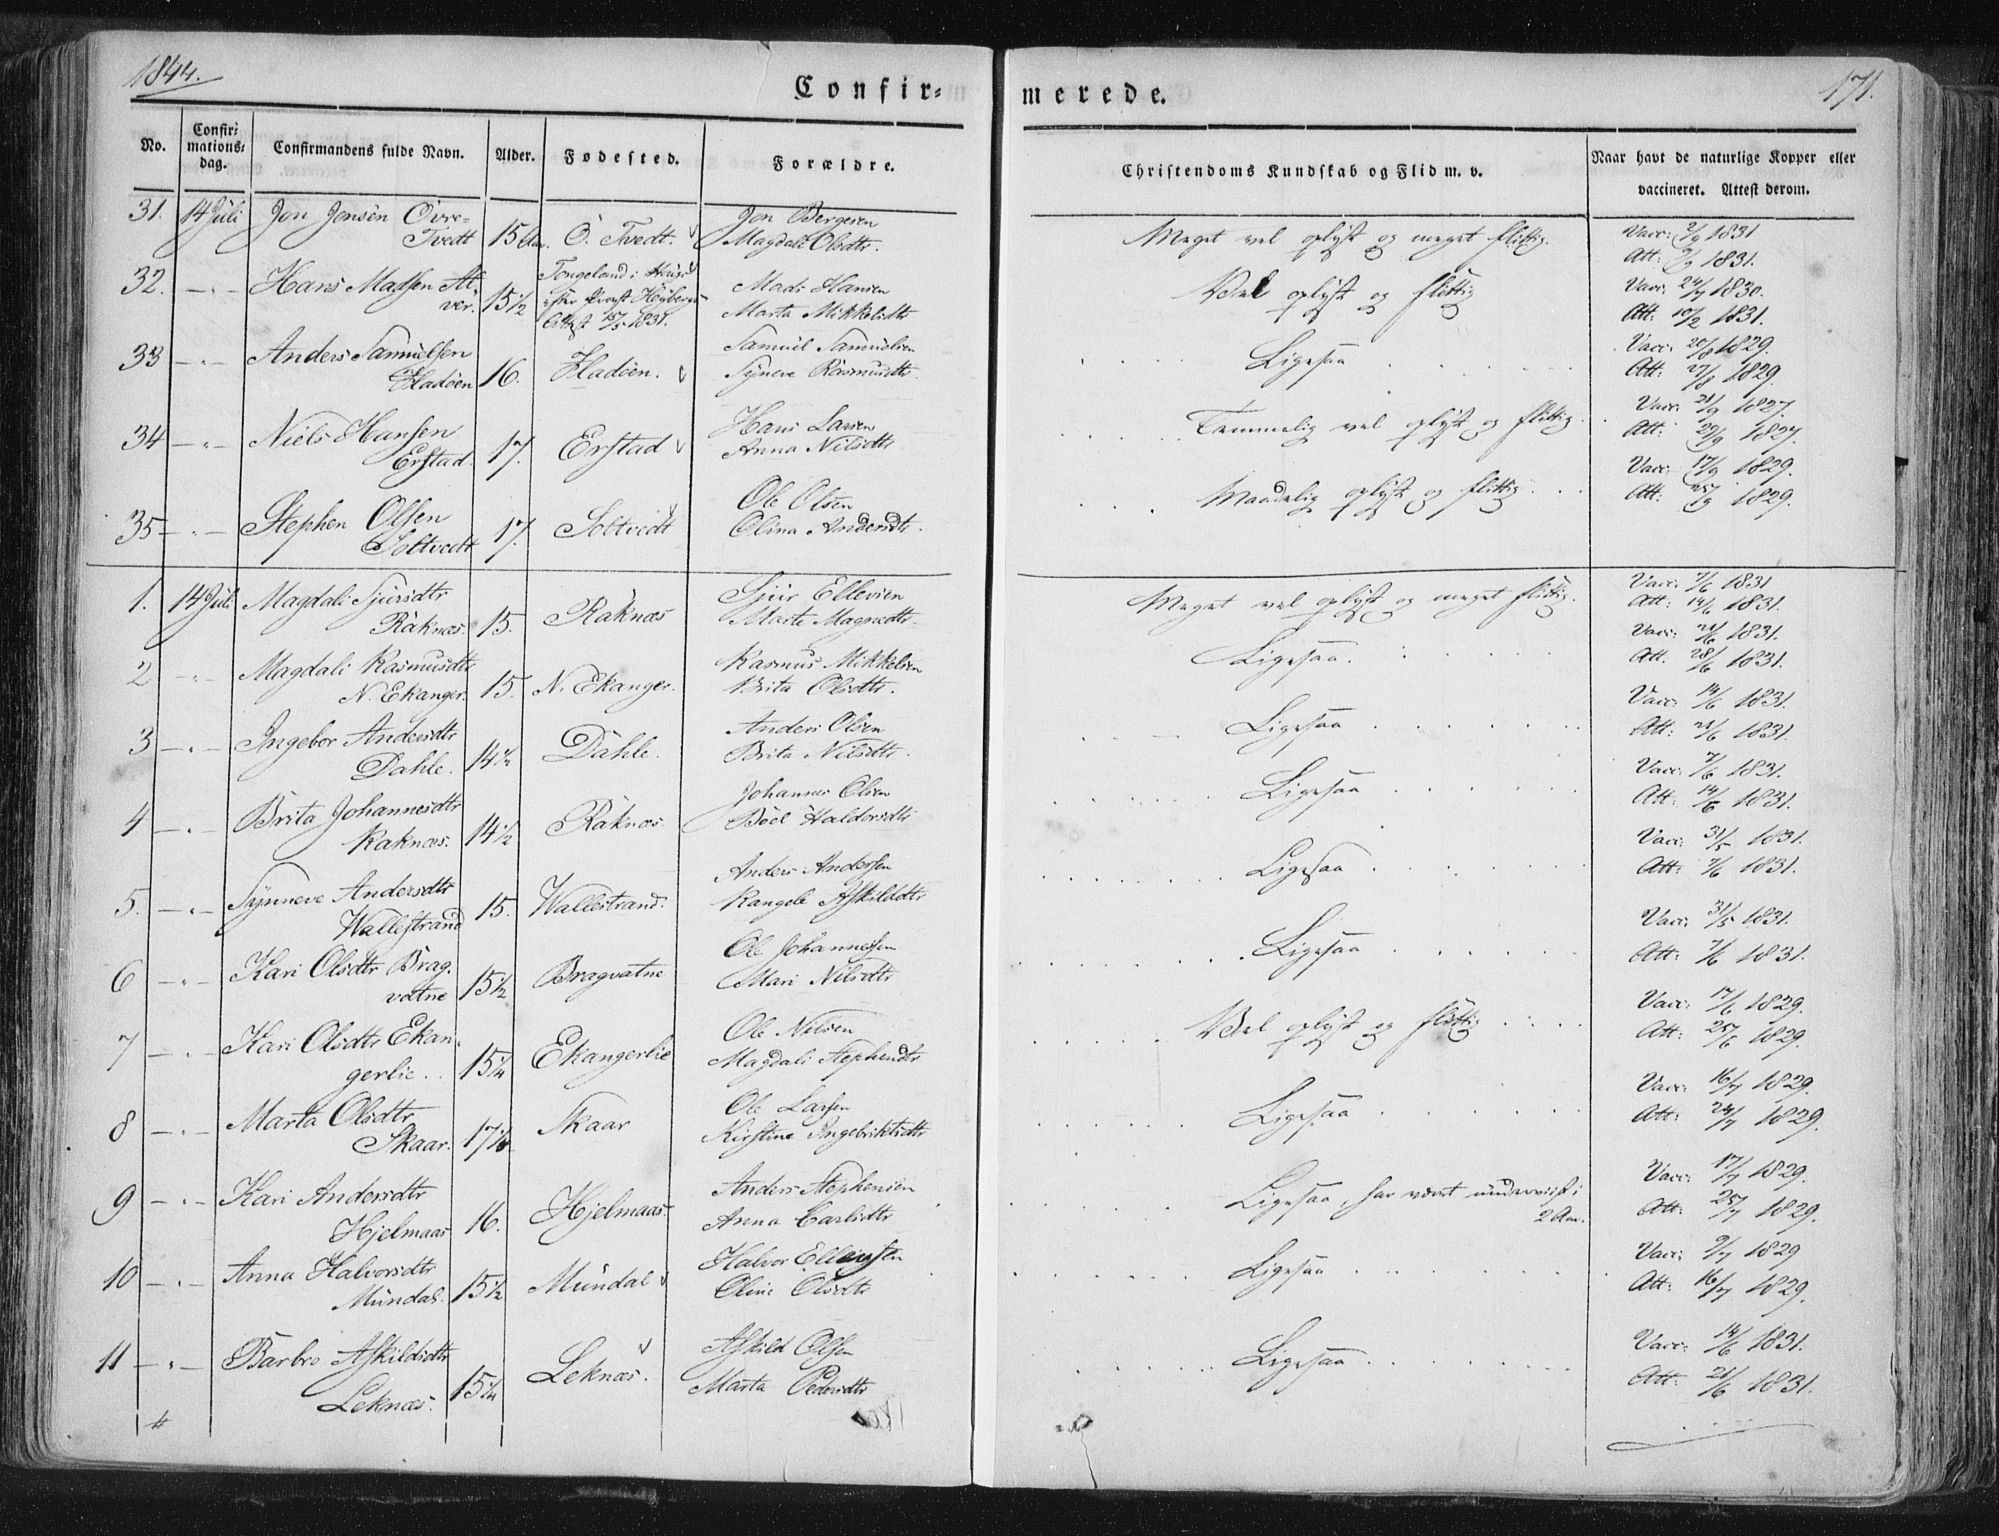 1844.
171.
Confir= merede.
No.
Confir=
mations=
dag.
Confirmandens fulde Navn.
Alder.
Fødested.
Forældre.
Christendoms Kundskab og Flid m. v.
Naar havt de naturlige Kopper eller
vaccineret. Attest derom.
31. 14 Juli Jon Jonsen Övre- Jon Bergesen Vacc: 2/9 1831
Tvedt 15 Aar. Ö. Tvedt. Magdali Olsdtr. Meget vel oplyst og meget flittig. Att: 1831.
32. -"- Hans Madsen Al- Tongeland i Mads Hansen Vel oplyst og flittig Vacc: 24/7 1830.
ver. 15 1/2 Attest 15/5 1831. Marta Mikkelsdtr Att: 10/2 1831.
33 -"- Anders Samuelsen Samuel Samuelsen Ligesaa Vacc: 20/8 1829.
Fladöen 16. Fladöen. Synneve Rasmusdtr. Att: 27/8 1829.
34 -"- Niels Hansen Hans Larsen Temmelig vel oplyst og flittig. Vacc: 21/9 1827.
Erstad. 17. Erstad Anna Nilsdtr Att: 29/9 1827.
35 -"- Stephen Olsen Ole Olsen Maadelig oplyst og flittig. Vacc: 17/9 1829.
Soltvedt 17. Soltvedt Olina Andersdtr. Att: 25/9 1829.
1. 14 Juli Magdali Sjursdtr Sjur Ellevsen Meget vel oplyst og meget flittig. Vacc: 7/6 1831
Raknæs. 15. Raknæs Marta Magnedtr. Att: 14/6 1831.
2 -"- Magdali Rasmusdtr Rasmus Mikkelsen Ligesaa. Vacc: 21/6 1831.
N. Ekanger. 15. N. Ekanger. Brita Olsdtr. Att. 28/6 1831.
3 -"- Ingebor Andersdtr Anders Olsen Ligesaa Vacc: 14/6 1831.
Dahle. 14 1/2 Dahle. Brita Nilsdtr. Att: 21/6 1831.
4 -"- Brita Johannesdtr Johannes Olsen Ligesaa Vacc: 7/6 1831.
Raknæs. 14 1/2 Raknæs. Böel Haldorsdtr Att: 14/6 1831.
5. -"- Synneve Andersdtr Anders Andersen Ligesaa Vacc: 31/5 1831.
Wallestrand 15. Wallestrand. Rangele Askildsdtr Att: 7/6 1831.
6 -"- Kari Olsdtr Brag- Ole Johannessen Ligesaa Vacc: 31/5 1831.
vatne 15 1/2 Bragvatne Mari Nilsdtr Att: 7/6 1831.
7 -"- Kari Olsdtr Ekan- Ole Nilsen Vel oplyst og flittig Vacc: 17/6 1829.
gerlie. 15 1/4 Ekangerlie Magdali Stephensdtr Att: 25/6 1829.
8 -"- Marta Olsdtr Ole Larsen Ligesaa Vacc: 16/7 1829.
Skaar. 17 1/4 Skaar Kirstine Ingebriktsdtr Att: 24/7 1829.
9 -"- Kari Andersdtr Anders Stephensen Ligesaa, har været underviist i Vacc: 17/7 1829.
Hjelmaas 16. Hjelmaas. Anna Carlsdtr 2 Aar. Att: 25/7 1829.
10 -"- Anna Halvorsdtr Halvor Ellingsen Ligesaa Vacc: 9/7 1829
Mundal. 15 1/2 Mundal Oline Olsdtr Att: 16/7 1829.
11 -"- Barbro Askildsdtr Askild Olsen Ligesaa Vacc: 14/6 1831.
Leknæs. 15 1/4 Leknæs. Marta Pedersdtr Att: 21/6 1831.